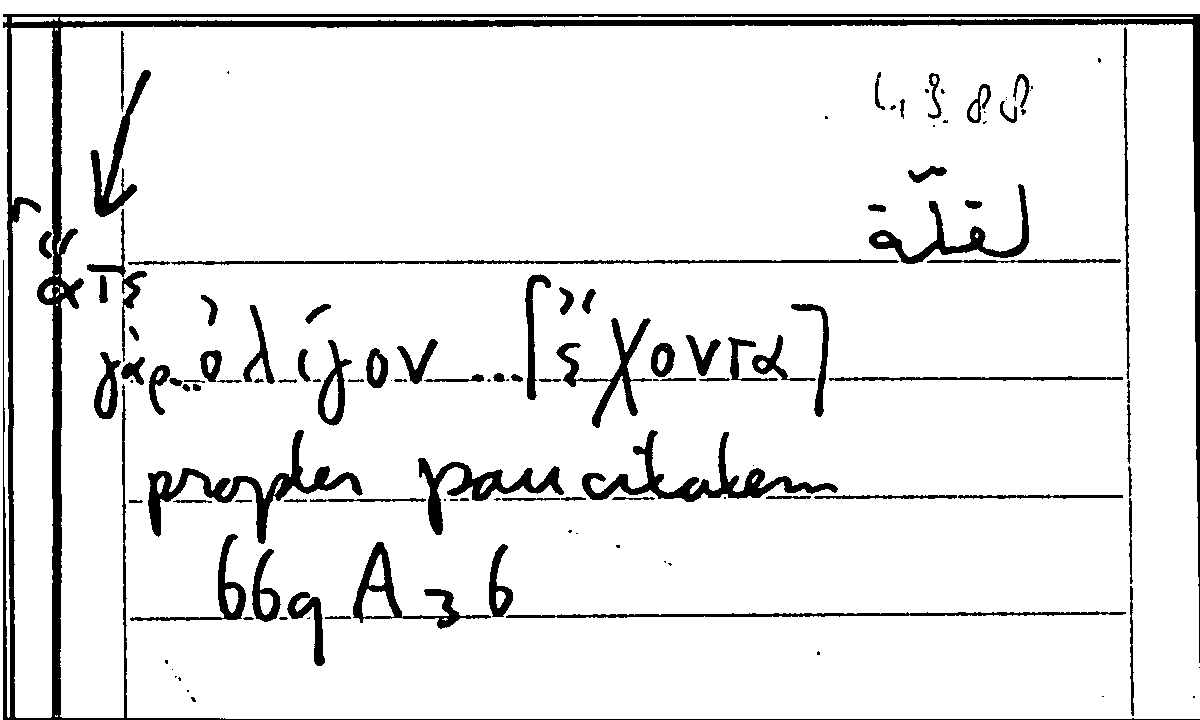 لقلّة
ἅτε
γὰρ...ὀλίγον...[ἔχοντα]
propter paucitatem
669 A 36